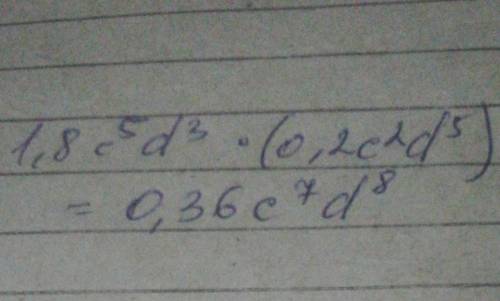 1,8 c⁵d³ · (0,2c²d⁵)
= 0,36c⁷d⁸